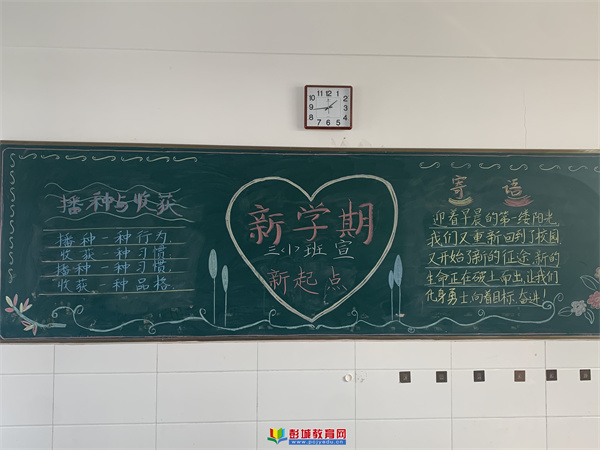 播种与收获
播种一种行为,
收获一种习惯,
播种一种习惯,
收获一种品格
新学期
三小班宣
新起点
寄语
迎着早晨的第一缕阳光,
我们又重新回到了校园,
又开始了新的征途,新的
生命正在破土而出,让我们
化身勇士,向着目标,奋进!
彭城教育网
www.pcjyedu.cn